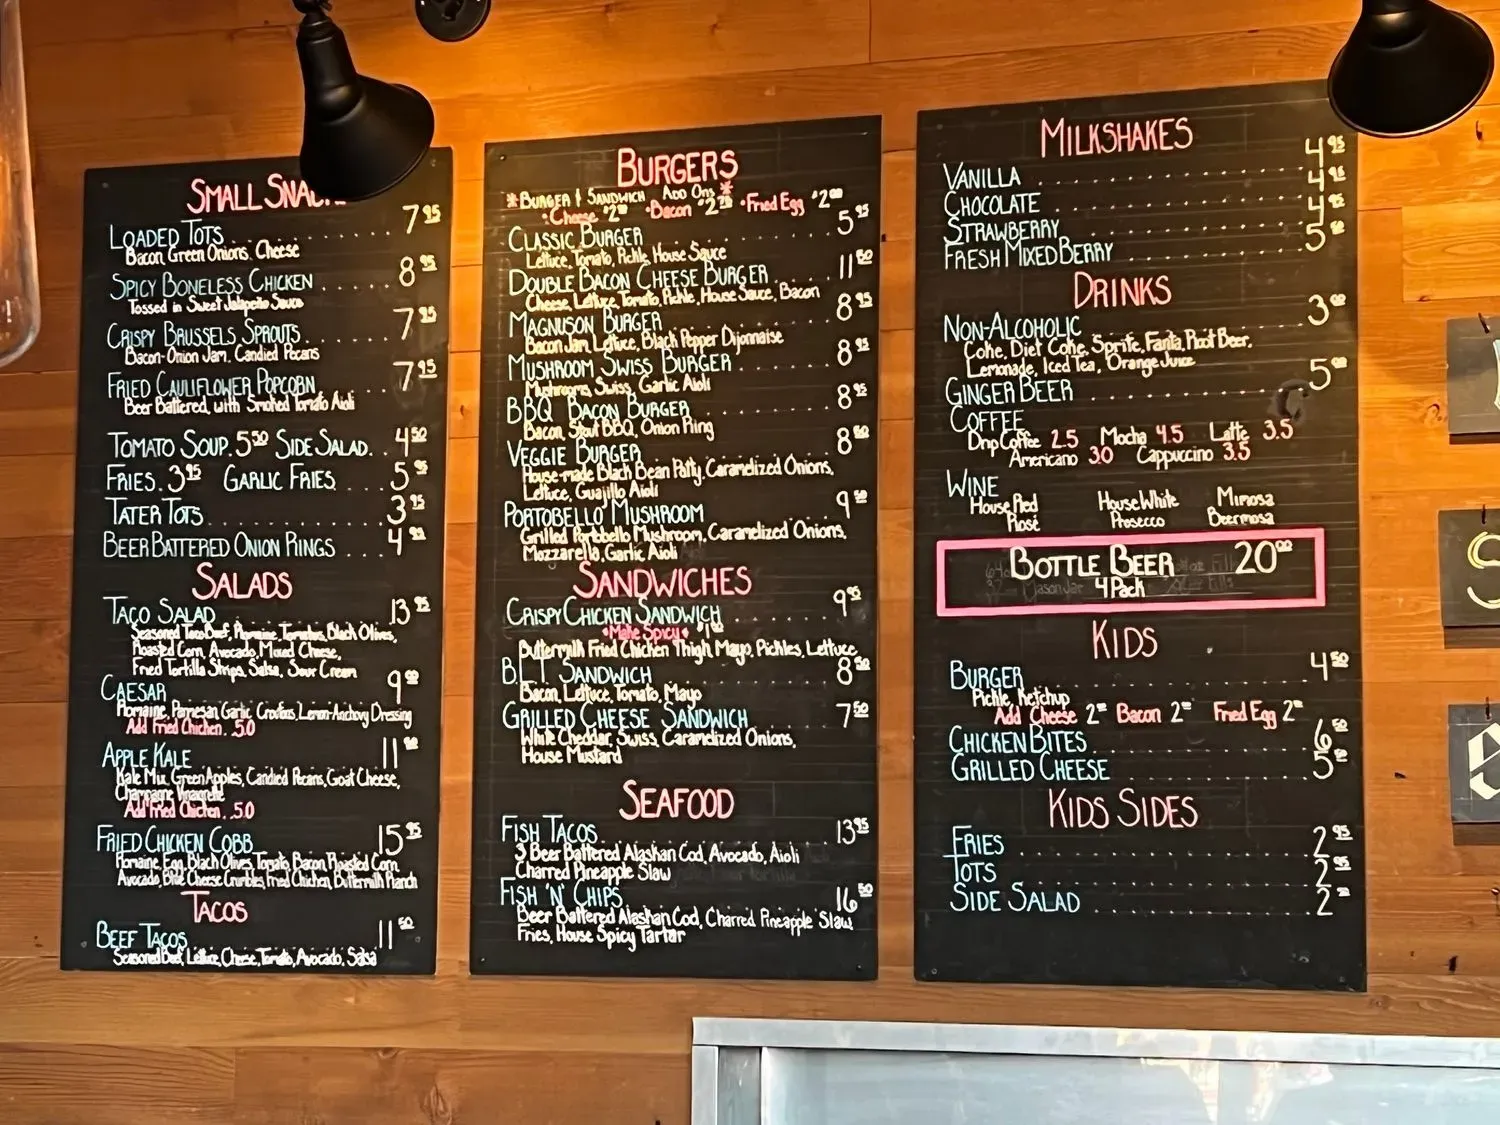 SMALL SNAC
LOADED TOTS 7.95
Bacon, Green Onions, Cheese
SPICY BONELESS CHICKEN 8.95
Tossed in Sweet Jalapeño Sauce
CRISPY BRUSSELS SPROUTS 7.95
Bacon-Onion Jam, Candied Pecans
FRIED CAULIFLOWER POPCORN 7.95
Beer Battered, with Smoked Tomato Aioli
TOMATO SOUP. 5.50 SIDE SALAD. . 4.50
FRIES. 3.95 GARLIC FRIES 5.95
TATER TOTS 3.95
BEER BATTERED ONION RINGS 4
SALADS
TACO SALAD 13.95
Seasoned Taco Beef, Romaine, Tomatoes, Black Olives,
Roasted Corn, Avocado, Mixed Cheese,
Fried Tortilla Strips, Salsa, Sour Cream
CAESAR 9
Romaine, Parmesan, Garlic, Croutons, Lemon-Anchovy Dressing
Add Fried Chicken . 5.0
APPLE KALE 11
Kale Mix, Green Apples, Candied Pecans, Goat Cheese,
Champagne Vinaigrette
Add Fried Chicken . 5.0
FRIED CHICKEN COBB 15.95
Romaine, Egg, Black Olives, Tomato, Bacon, Roasted Corn,
Avocado, Blue Cheese Crumbles, Fried Chicken, Buttermilk Ranch
TACOS
BEEF TACOS 11.50
Seasoned Beef, Lettuce, Cheese, Tomato, Avocado, Salsa
BURGERS
*BURGER & SANDWICH ADD ONS*
•Cheese $2 •Bacon $2 •Fried Egg $2.00
CLASSIC BURGER 5.95
Lettuce, Tomato, Pickle, House Sauce
DOUBLE BACON CHEESE BURGER 11.50
Cheese, Lettuce, Tomato, Pickle, House Sauce, Bacon
MAGNUSON BURGER 8.95
Bacon Jam, Lettuce, Black Pepper Dijonnaise
MUSHROOM SWISS BURGER 8.95
Mushrooms, Swiss, Garlic Aioli
BBQ BACON BURGER 8.95
Bacon, Stout BBQ, Onion Ring
VEGGIE BURGER 8.50
House-made Black Bean Patty, Caramelized Onions,
Lettuce, Guajillo Aioli
PORTOBELLO MUSHROOM 9.50
Grilled Portobello Mushroom, Caramelized Onions,
Mozzarella, Garlic Aioli
SANDWICHES
CRISPY CHICKEN SANDWICH 9.95
•Make Spicy• $1.00
Buttermilk Fried Chicken Thigh, Mayo, Pickles, Lettuce
B.L.T. SANDWICH 8.50
Bacon, Lettuce, Tomato, Mayo
GRILLED CHEESE SANDWICH 7.50
White Cheddar, Swiss, Caramelized Onions,
House Mustard
SEAFOOD
FISH TACOS 13.95
3 Beer Battered Alaskan Cod, Avocado, Aioli
Charred Pineapple Slaw
FISH 'N' CHIPS 16.50
Beer Battered Alaskan Cod, Charred Pineapple Slaw
Fries, House Spicy Tartar
MILKSHAKES
VANILLA 4.95
CHOCOLATE 4.95
STRAWBERRY 4.95
FRESH MIXED BERRY 5
DRINKS
NON-ALCOHOLIC 3.00
Coke, Diet Coke, Sprite, Fanta, Root Beer,
Lemonade, Iced Tea, Orange Juice
GINGER BEER 5.00
COFFEE
Drip Coffee 2.5 Mocha 4.5 Latte 3.5
Americano 3.0 Cappuccino 3.5
WINE
House Red House White Mimosa
Rosé Prosecco Beermosa
BOTTLE BEER 20.00
4 Pack
KIDS
BURGER 4.50
Pickle, Ketchup
Add Cheese 2 Bacon 2 Fried Egg 2
CHICKEN BITES 6.50
GRILLED CHEESE 5
KIDS SIDES
FRIES 2.95
TOTS 2.95
SIDE SALAD 2